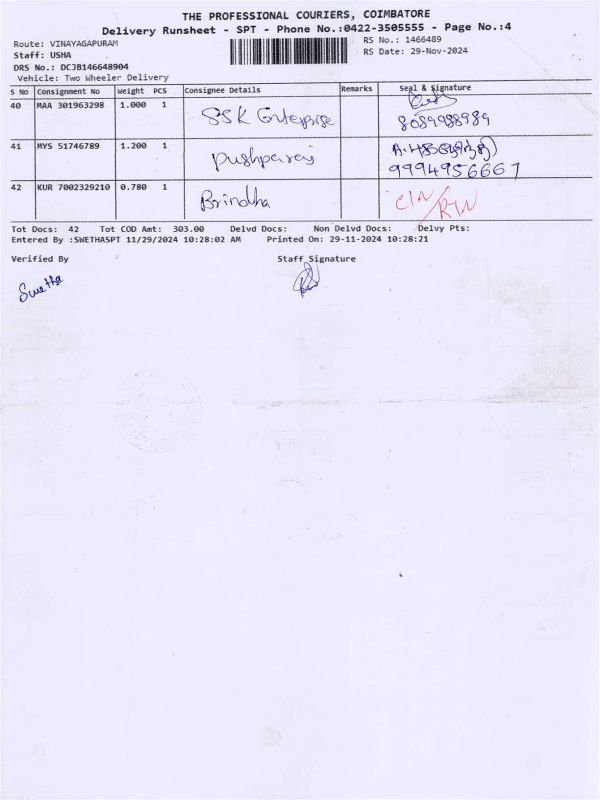 THE PROFESSIONAL COURIERS, COIMBATORE
Delivery Runsheet - SPT - Phone No.:0422-3505555 - Page No.:4
Route: VINAYAGAPURAM RS No.: 1466489
Staff: USHA RS Date: 29-Nov-2024
DRS No.: DCJB146648904
Vehicle: Two Wheeler Delivery
S No Consignment No Weight PCS Consignee Details Remarks Seal & Signature
40 MAA 301963298 1.000 1 SSK Enterprise 8089988989
41 MYS 51746789 1.200 1 Pushparaj 9994956667
42 KUR 7002329210 0.780 1 Brindha CIN/RTN
Tot Docs: 42 Tot COD Amt: 303.00 Delvd Docs: Non Delvd Docs: Delvy Pts:
Entered By :SWETHASPT 11/29/2024 10:28:02 AM Printed On: 29-11-2024 10:28:21
Verified By Staff Signature
Swetha